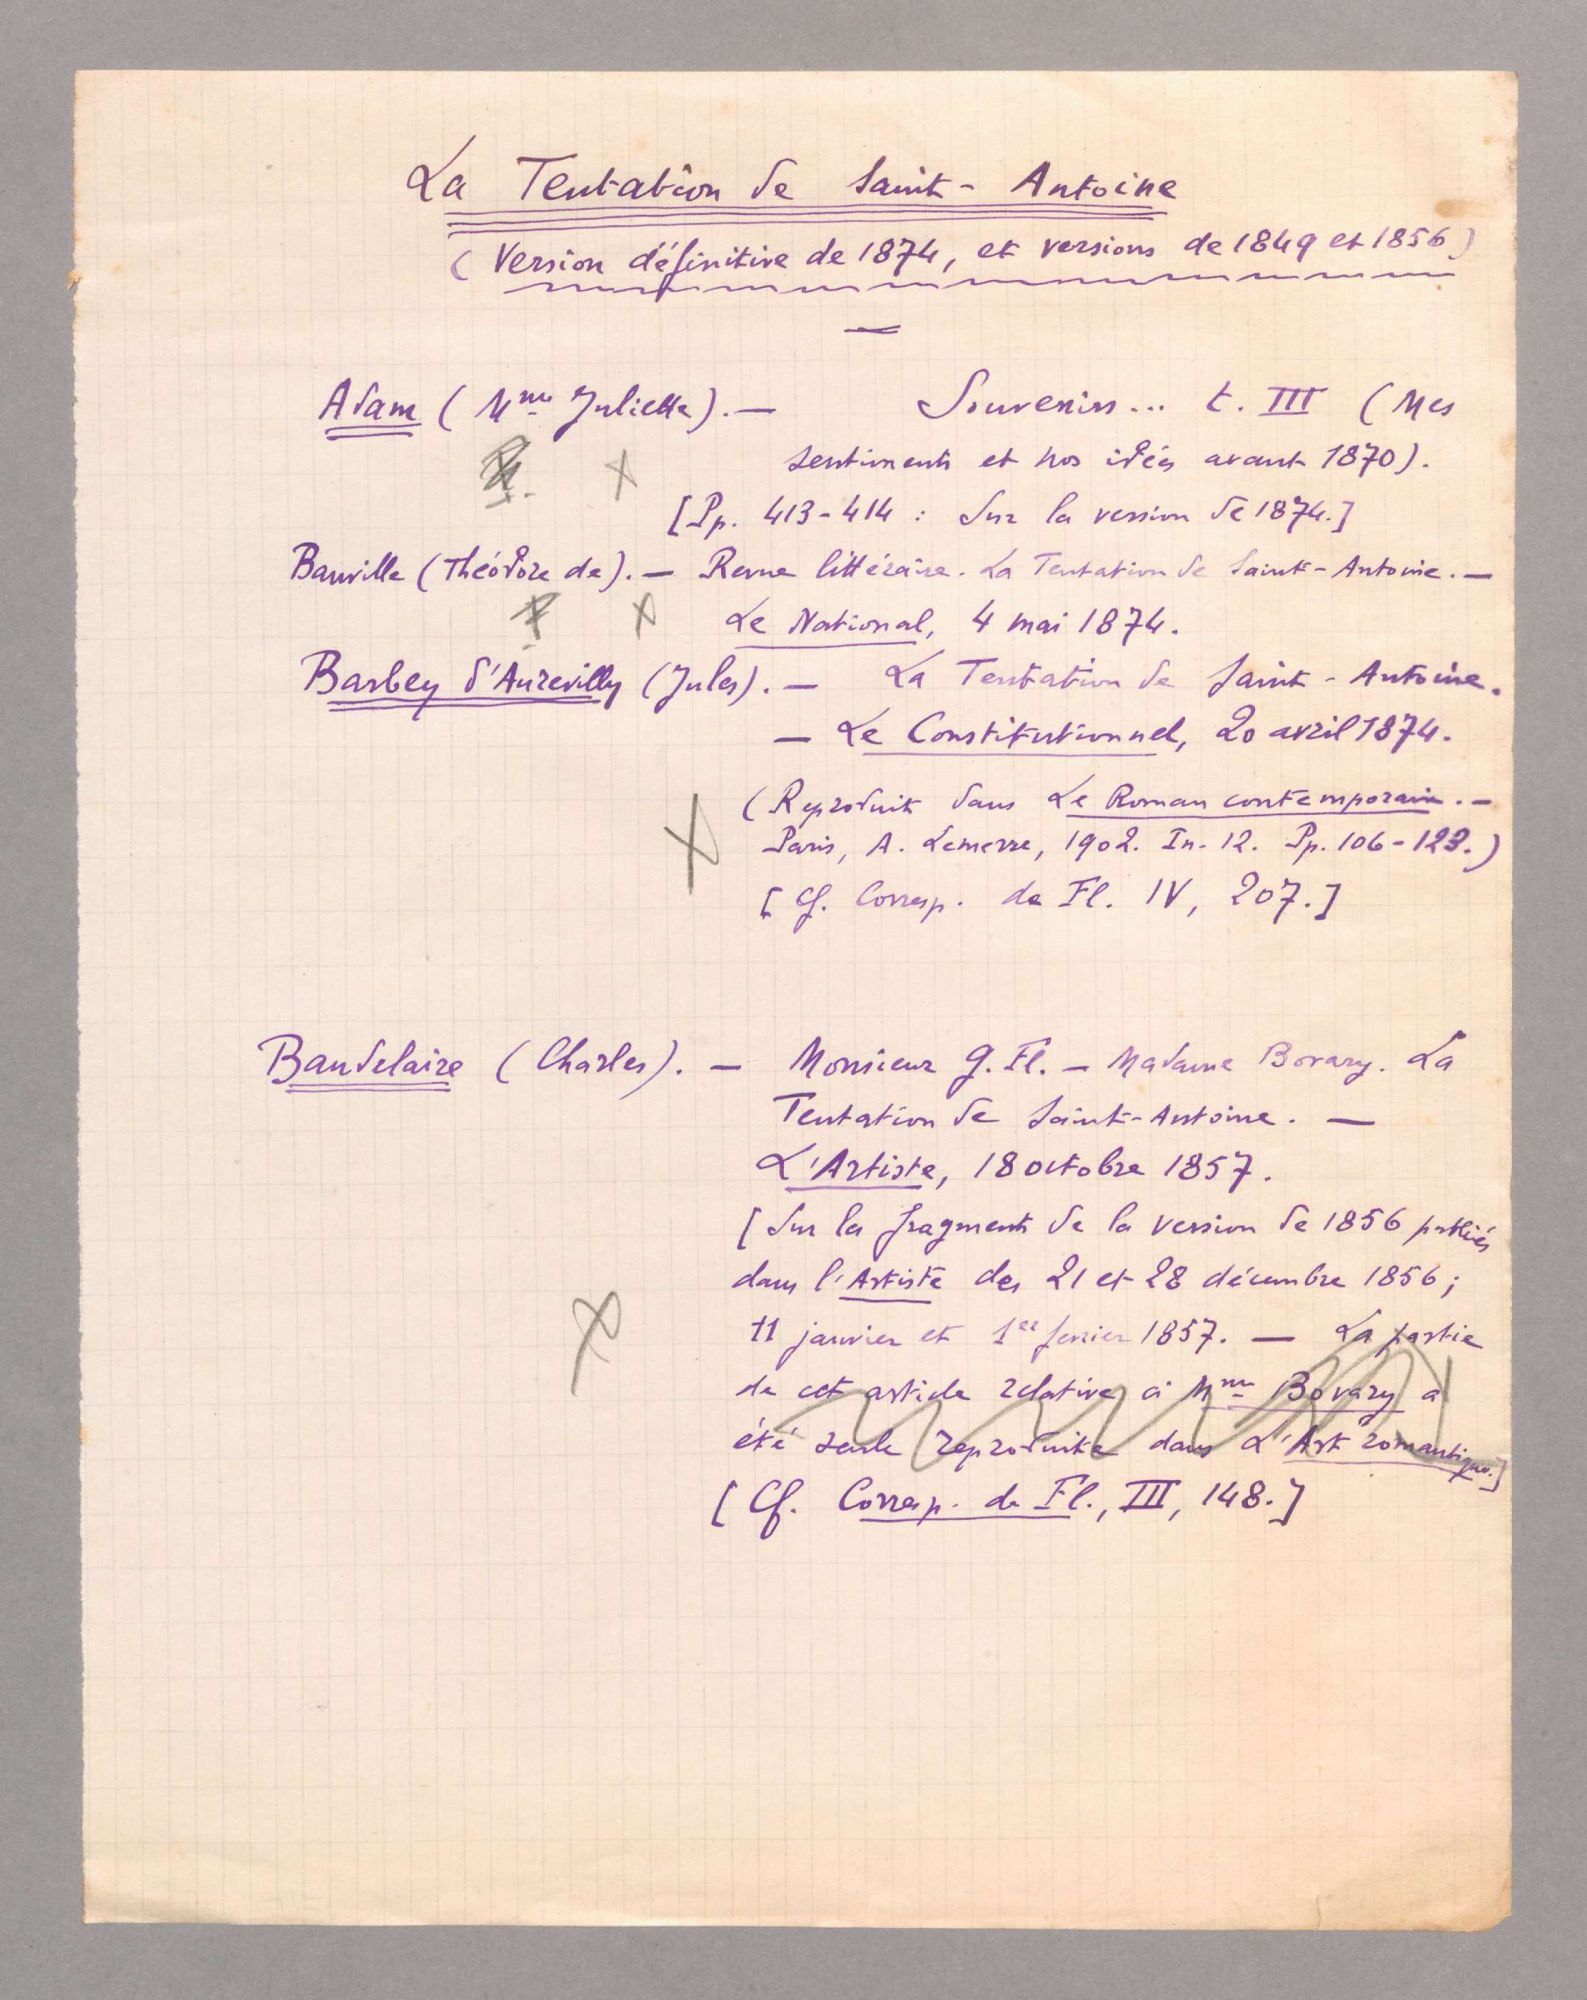 La Tentation de Saint-Antoine
(Version définitive de 1874, et versions de 1849 et 1856)
Adam (Mme Juliette). — Souvenirs... t. III (Mes
sentiments et nos idées avant 1870).
[Pp. 413-414 : Sur la version de 1874.]
Banville (Théodore de). — Revue littéraire. La Tentation de Saint-Antoine. —
Le National, 4 mai 1874.
Barbey d'Aurevilly (Jules). — La Tentation de Saint-Antoine.
— Le Constitutionnel, 20 avril 1874.
(Reproduit dans Le Roman contemporain. —
Paris, A. Lemerre, 1902. In-12. Pp. 106-123.)
[Cf. Corresp. de Fl. IV, 207.]
Baudelaire (Charles). — Monsieur G. Fl. — Madame Bovary. La
Tentation de Saint-Antoine. —
L'Artiste, 18 octobre 1857.
[Sur les fragments de la version de 1856 publiés
dans l'Artiste des 21 et 28 décembre 1856 ;
11 janvier et 1er fevrier 1857. — La partie
de cet article relative à Mme Bovary a
été seule reproduite dans L'Art romantique.]
[Cf. Corresp. de Fl., III, 148.]